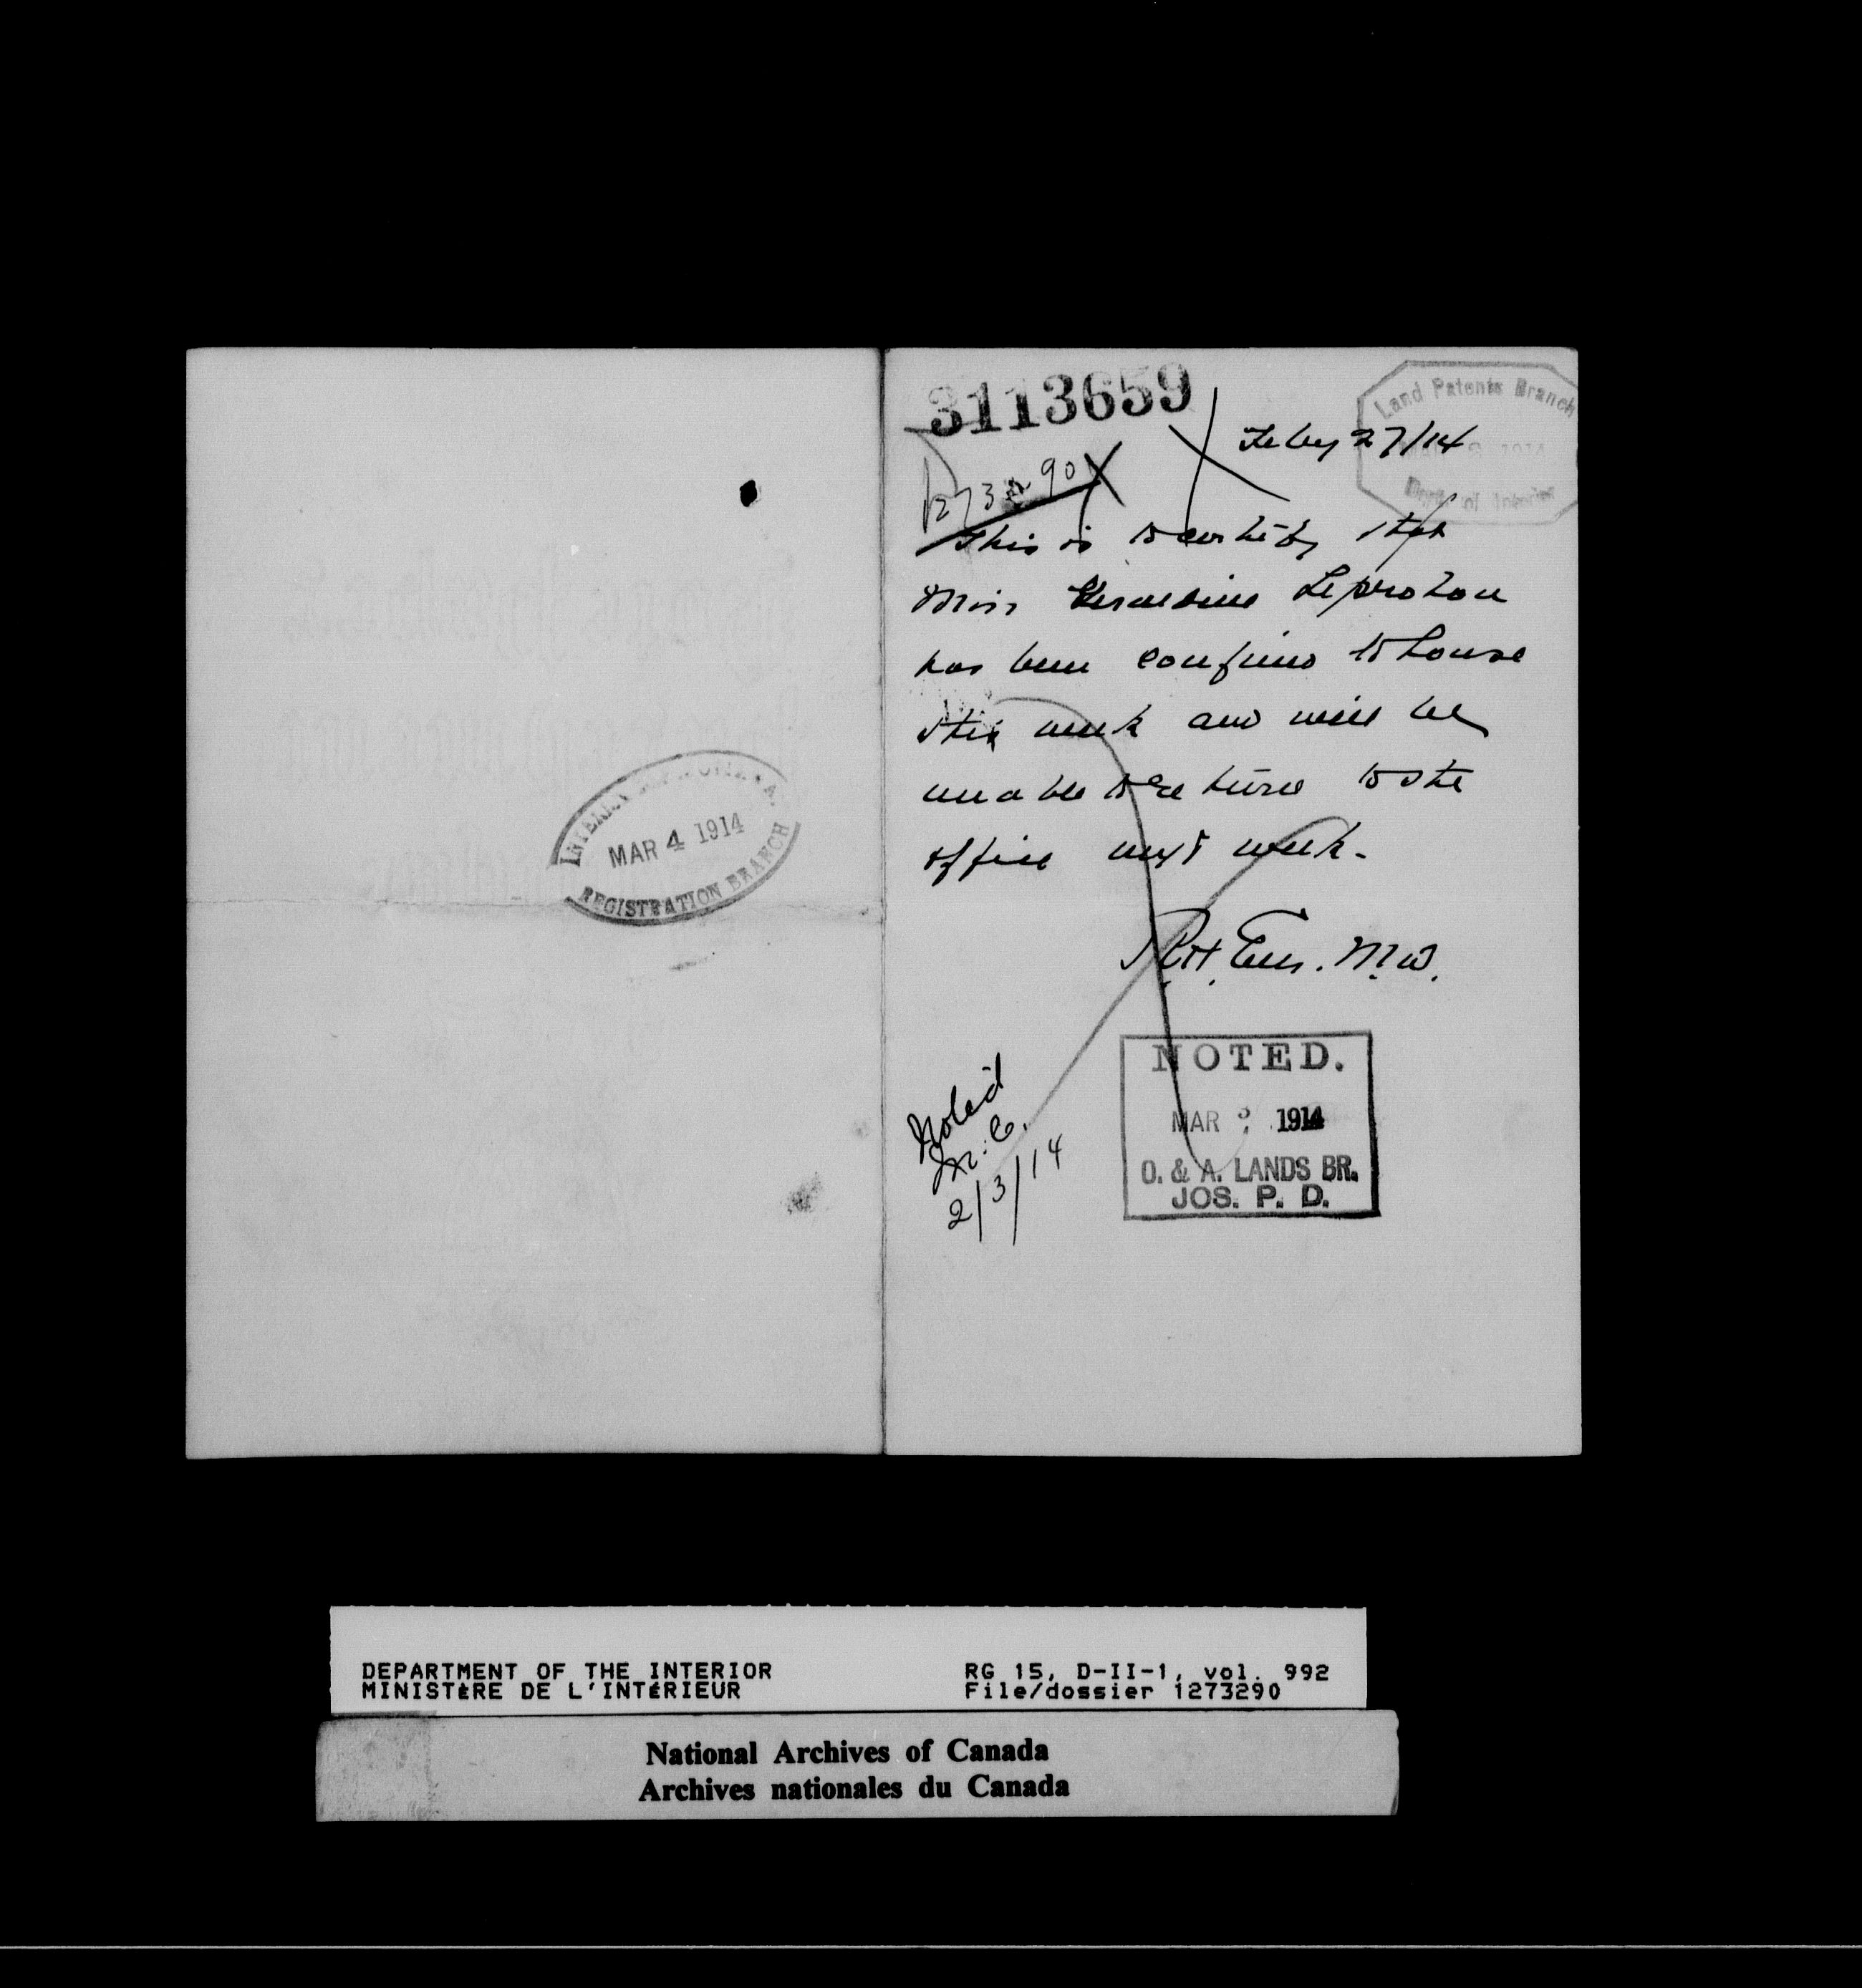 3113659
Land Patents Branch
Feby 27/14
1914
Dept. of Interior
1273290
This is to certify that
Miss Geraldine Leprohon
has been confined to house
this week and will be
unable to return to the
office next week.
R.H. M.D.
MAR 4 1914
REGISTRATION BRANCH
Noted
2/3/14
NOTED.
MAR 1914
O. & A. LANDS BR.
JOS. P. D.
DEPARTMENT OF THE INTERIOR RG 15, D-II-1, vol. 992
MINISTÈRE DE L'INTÉRIEUR File/dossier 1273290
National Archives of Canada
Archives nationales du Canada